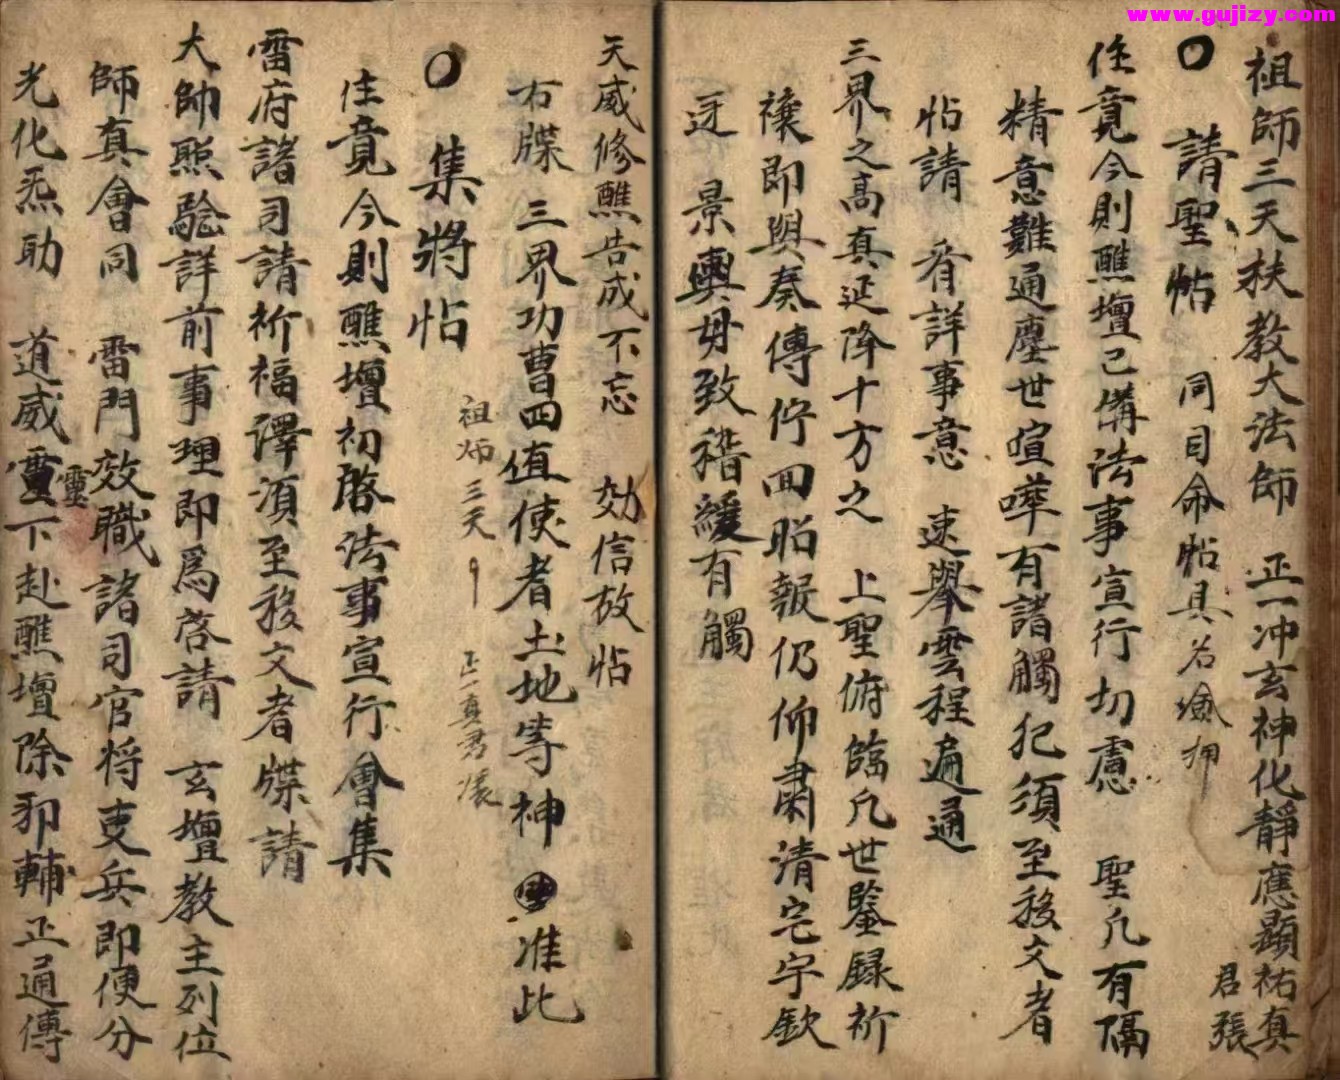 www.gujizy.com
祖師三天扶教大法師　正一冲玄神化靜應顯祐真
君張
請聖帖　同目命帖具名
住竟今則醮壇已俻法事宣行切慮　聖凡有隔
精意難通塵世喧嘩有諸觸犯須至移文者
帖請　看詳事意　速舉雲程遍通
三界之高真延降十方之　上聖俯臨凡世鑒録祈
禳即與奏傳佇回昭報仍仰肅清宅宇欽
迓　景輿毋致稽緩有觸
天威修醮告成不忘　効信故帖
右牒　三界功曹四值使者土地等神　准此
祖师三天　正一真君
集將帖
住竟今則醮壇初啓法事宣行會集
雷府諸司請祈福澤須至移文者牒請
大帥照驗詳前事理即爲啓請　玄壇教主列位
師真會同　雷門效職諸司官将吏兵即便分
光化炁助　道威靈下赴醮壇除邪輔正通傳
靈